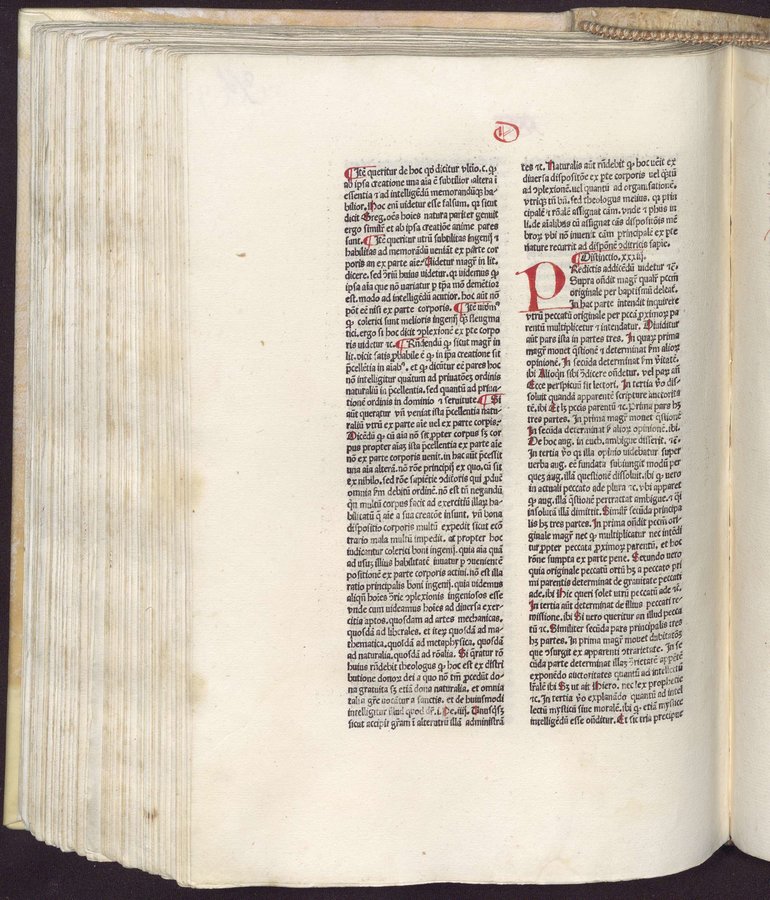 D
¶ Itē queritur de hoc qð dicitur vltīo.c. ꝙ
ab ipsa creatione una aīa ē subtilior altera ī
essentia ⁊ ad intelligēdū memorandūꝙ ha-
bilior. Hoc enī uidetur esse falsum, qr sicut
dicit Greg. oēs hoīes natura pariter genuit
ergo similr̄ et ab ipsa creatiōe anime pares
sunt. ¶ Itē queritur utrū subtilitas ingenij ⁊
habilitas ad memorādū veniāt ex parte cor
poris an ex parte aīe? Uidetur magr̄ in līt.
dicere. sed ꝯriū huius uidetur. qr uidemus ꝙ
ipsa aīa que nō variatur
est. modo ad intelligēdū acutior. hoc aūt nō
pōt eē nisi ex parte corporis. ¶ Itē
ꝙ colerici sunt melioris ingenij ꝙ fleugma
tici. ergo si hoc dicit ꝯplexionē ex pte corpo
ris uidetur ⁊c. ¶ Rn̄dendū ꝙ sicut magr̄ in
līt. dicit satis ꝓbabile ē ꝙ in ipa creatione sit
pcellētia in aīabꝰ. et ꝙ dicūtur eē pares hoc
nō intelligitur quātum ad priuatōeȝ ordinis
naturaliū in pcellentia. sed quantū ad priua
tionē ordinis in dominio ⁊ seruitute. ¶ Si
aūt queratur vn̄ veniat ista pcellentia natu-
raliū vtrū ex parte aīe vel ex parte corpis.
Dicēdū ꝙ cū aīa nō sit ꝓpter corpus sȝ cor
pus propter aīaȝ ista pcellentia ex parte aīe
nō ex parte corporis uenit. in hac aūt pcessit
una aīa alterā. nō rōe principij ex quo. cū sit
ex nihilo. sed rōe sapiētie ꝯditoris qui ꝓdux̄
omnia scd̄m debitū ordinē. nō est tn̄ negandū
qn̄ multū corpus facit ad exercitiū illaꝝ ha-
bilitatū ꝙ aīe a sua creatōe insunt. vn̄ bona
dispositio corporis multū expedit sicut ecō
trario mala multū impedit. et propter hoc
iudicantur colerici boni ingenij. quia aīa quā
ad usuȝ illius habilitatē iuuatur ꝓ uenientē
positionē ex parte corporis actiui. nō est illa
ratio principalis boni ingenij. quia uidemus
aliqn̄ hoīes ꝯrie ꝯplexionis ingeniosos esse
vnde cum uideamus hoīes ad diuersa exer-
citia aptos. quosdam ad artes mechanicas,
quosdā ad liberales. et iteꝝ quosdā ad ma-
thematica. quosdā ad metaphysica. quosdā
ad naturalia. quosdā ad rōalia. Si q̄ratur rō
huius rn̄debit theologus ꝙ hoc est ex distri
butione donoꝝ dei a quo nō tm̄ pcedūt do-
na gratuita sȝ etiā dona naturalia. et omnia
talia gr̄e uocātur a sanctis. et de huiusmodi
intelligitur illud quod dr̄. i. Pe. iiij. Unusqsȝ
sicut accipit gr̄am ī alterutrū illā administrā
tes ⁊c. Naturalis aūt rn̄debit ꝙ hoc ueīt ex
diuersa dispositōe ex pte corporis vel
ad ꝯplexionē. uel quantū ad organisationē.
vtriqꝫ tn̄ bn̄. sed theologus melius. qr prin
cipalē ⁊ rōalē assignat cām. vnde ⁊ phus in
li. de aīalibus cū assignat cās dispositōis mē
broꝝ vbi nō inuenit cām principalē ex pte
nature recurrit ad dispōnē ꝯditricis sapie.
¶ Distinctio. xxxiij.
PRedictis addicēdū uidetur ⁊c.
Supra ondit magr̄ qualr̄ pctm̄
originale per baptismū deleat.
In hac parte intendit inquirere
vtrū peccatū originale per pctā ꝓximoꝝ pa
rentū multiplicetur ⁊ intendatur. Diuiditur
aūt pars ista in partes tres. In quaꝝ prima
magr̄ mouet q̄stionē ⁊ determinat scd̄m alioꝝ
opinionē. In secūda determinat scd̄m vītatē.
ibi Alioqn̄ sibi ꝯdicere ondetur. vel
Ecce perspicuū sit lectori. In tertia ꝓo dis-
soluit quandā apparentē scripture auctorita
tē. ibi Et sȝ pctīs parentū ⁊c. Prima pars hȝ
tres partes. In prima magr̄ mouet q̄stionē
In secūda determinat scd̄m alioꝝ opinionē. ibi.
De hoc aug. in euch. ambigue disserit. ⁊c.
In tertia ꝓo qr illa opinio uidebatur super
verba aug. eē fundata subiungit modū per
queȝ aug. illā questionē dissoluit. ibi ꝙ uero
in actuali peccato ade plura ⁊c. vbi apparet
ꝙ aug. illā q̄stionē pertractat ambigue. ⁊ q̄si
insolutā illā dimittit. Similr̄ secūda principa
lis hȝ tres partes. In prima ondit pctm̄ ori-
ginale magr̄ nec ꝙ multiplicatur nec intēdi
tur ꝓpter peccata ꝓximoꝝ parentū. et hoc
rōne sumpta ex parte pene. Secundo uero
quia originale peccatū ortū hȝ a peccato pri
mi parentis determinat de grauitate peccati
ade. ibi Hic queri solet vtrū peccatū ade ⁊c.
In tertia aūt determinat de illius peccati re-
missione. ibi Si vero queritur an illud pecca
tū ⁊c. Similiter secūda pars principalis tres
hȝ partes. In prima magr̄ mouet dubitatōȝ
que ꝯsurgit ex apparenti ꝯtrarietate. In se
cūda parte determinat illaȝ ꝯrietatē
exponēdo auctoritates quantū ad intellectū
līralē ibi Sȝ ut ait Hiero. nec lex prophetie
⁊c. In tertia ꝓo explanādo quantū ad intel
lectū mysticū siue moralē. ibi ꝙ etiā mystice
intelligēdū esse onditur. Et sic tria precipue